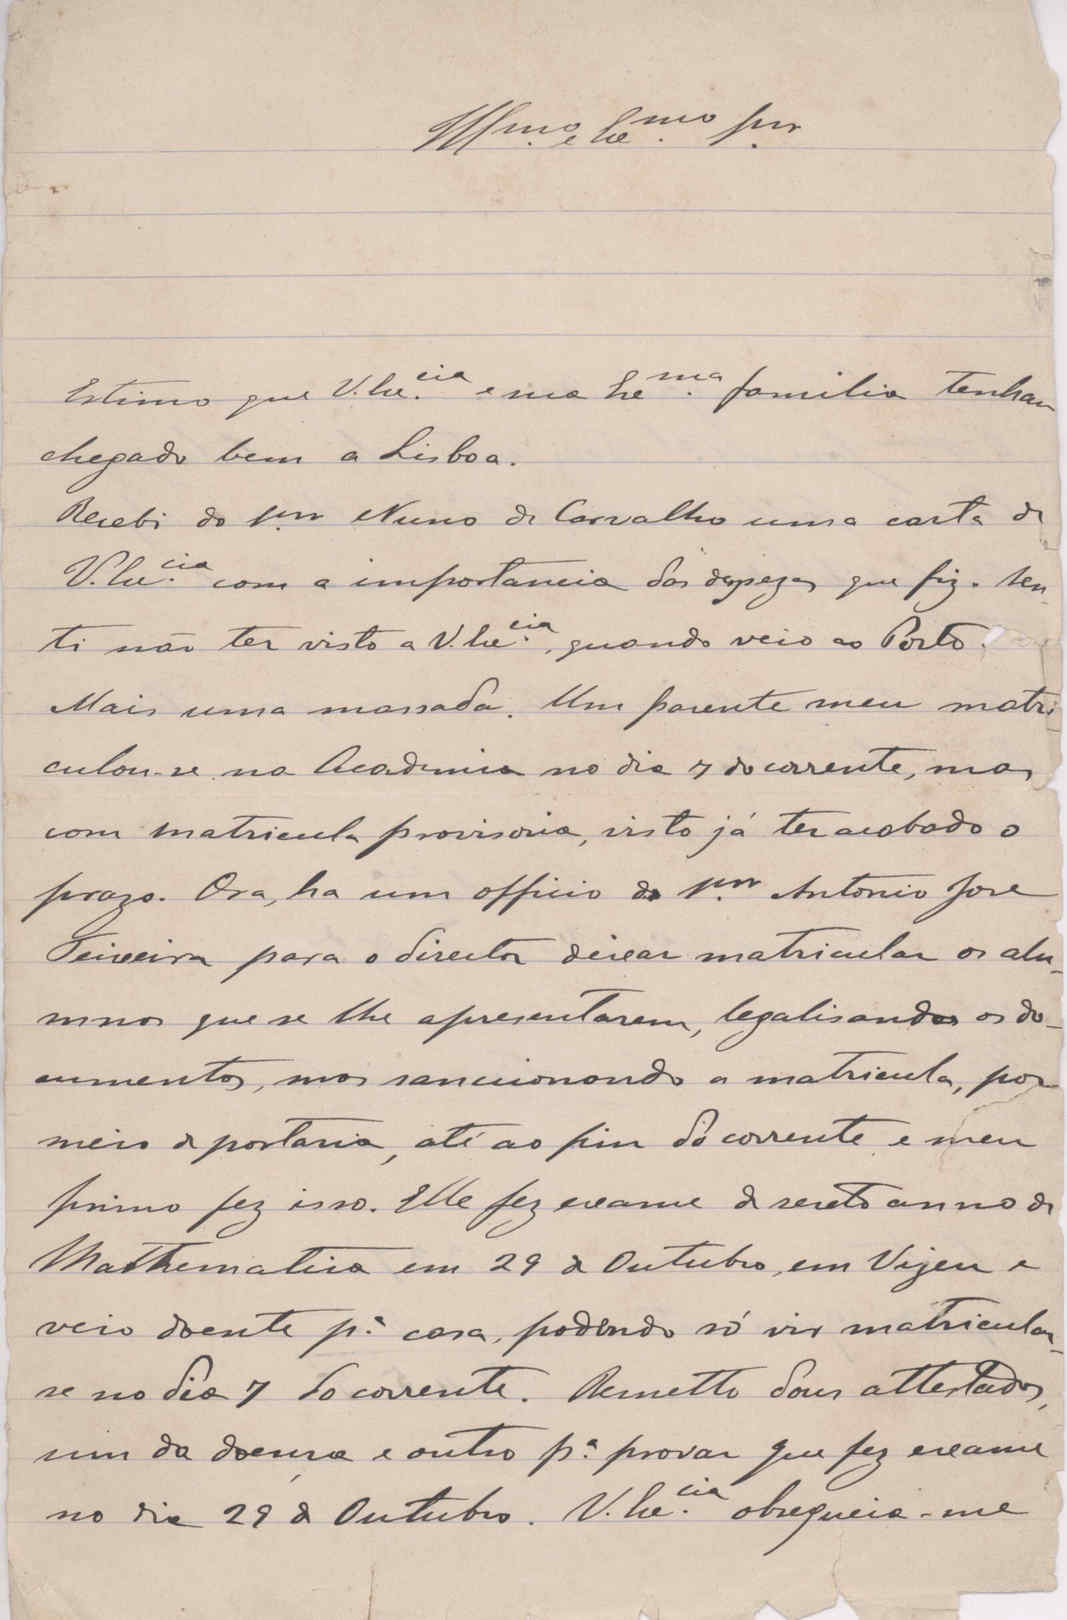 Ill.mo e Ex.mo Snr.
Estimo que V. Ex.cia e sua Ex.ma familia tenham
chegado bem a Lisboa.
Recebi do Snr. Nuno de Carvalho uma carta de
V. Ex.cia com a importancia das despezas que fiz. Sen-
ti não ter visto a V. Ex.cia, quando veio ao Porto.
Mais uma massada. Um parente meu matri
culou-se na Academia no dia 7 do corrente, mas
com matricula provisoria, visto já ter acabado o
prazo. Ora, ha um officio do Snr. Antonio Jose
Teixeira para o director deixar matricular os alu-
mnos que se lhe apresentarem, legalisando os do-
cumentos, mas sanccionando a matricula, por
meio de portaria, até ao fim do corrente e meu
primo fez isso. Elle fez exame de sexto anno de
Mathematica em 29 de Outubro, em Vizeu e
veio doente p.ª casa, podendo só vir matricular-
se no dia 7 do corrente. Remetto dous attestados,
um da doença e outro p.ª provar que fez exame
no dia 29 de Outubro. V. Ex.cia obsequeia-me